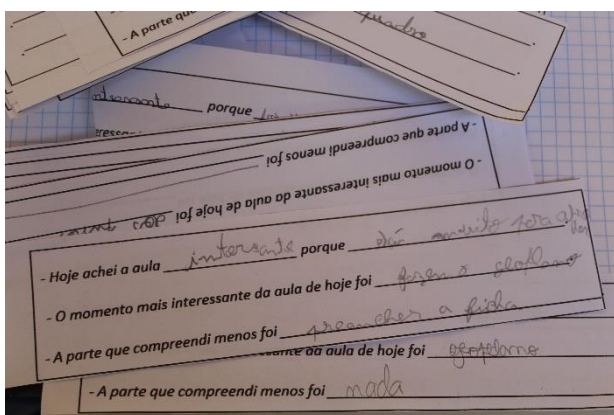 - A parte qu
quadro
porque
- A parte que compreendi menos foi
- O momento mais interessante da aula de hoje foi
- Hoje achei a aula intersante porque dá muito para
- O momento mais interessante da aula de hoje foi fazer o geoplano
- A parte que compreendi menos foi preencher a ficha
ante da aula de hoje foi geoplano
- A parte que compreendi menos foi nada